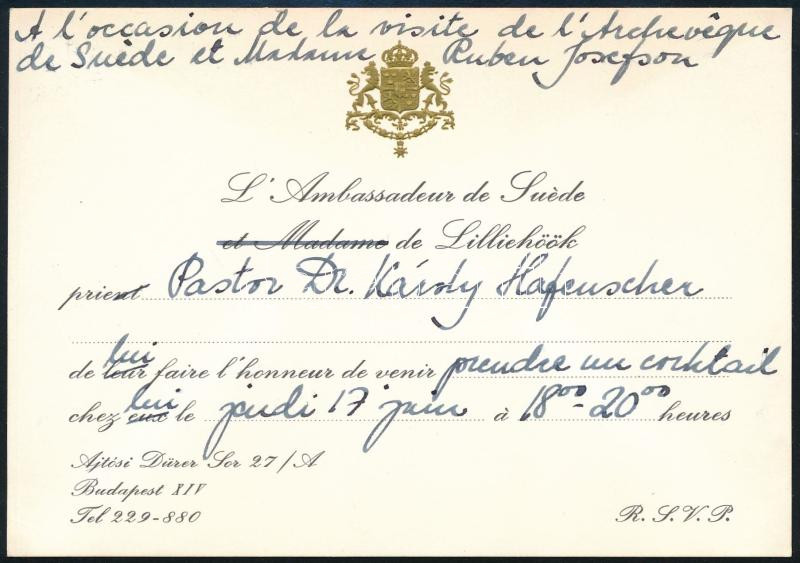 A l'occasion de la visite de l'Archevêque
de Suède et Madame Ruben Josefson
L'Ambassadeur de Suède
et Madame de Lilliehöök
prient Pastor Dr. Károly Hafenscher
lui
de leur faire l'honneur de venir prendre un cocktail
lui
chez eux le jeudi 17 juin à 18⁰⁰-20⁰⁰ heures
Ajtósi Dürer Sor 27/A
Budapest XIV
Tel 229-880
R.S.V.P.